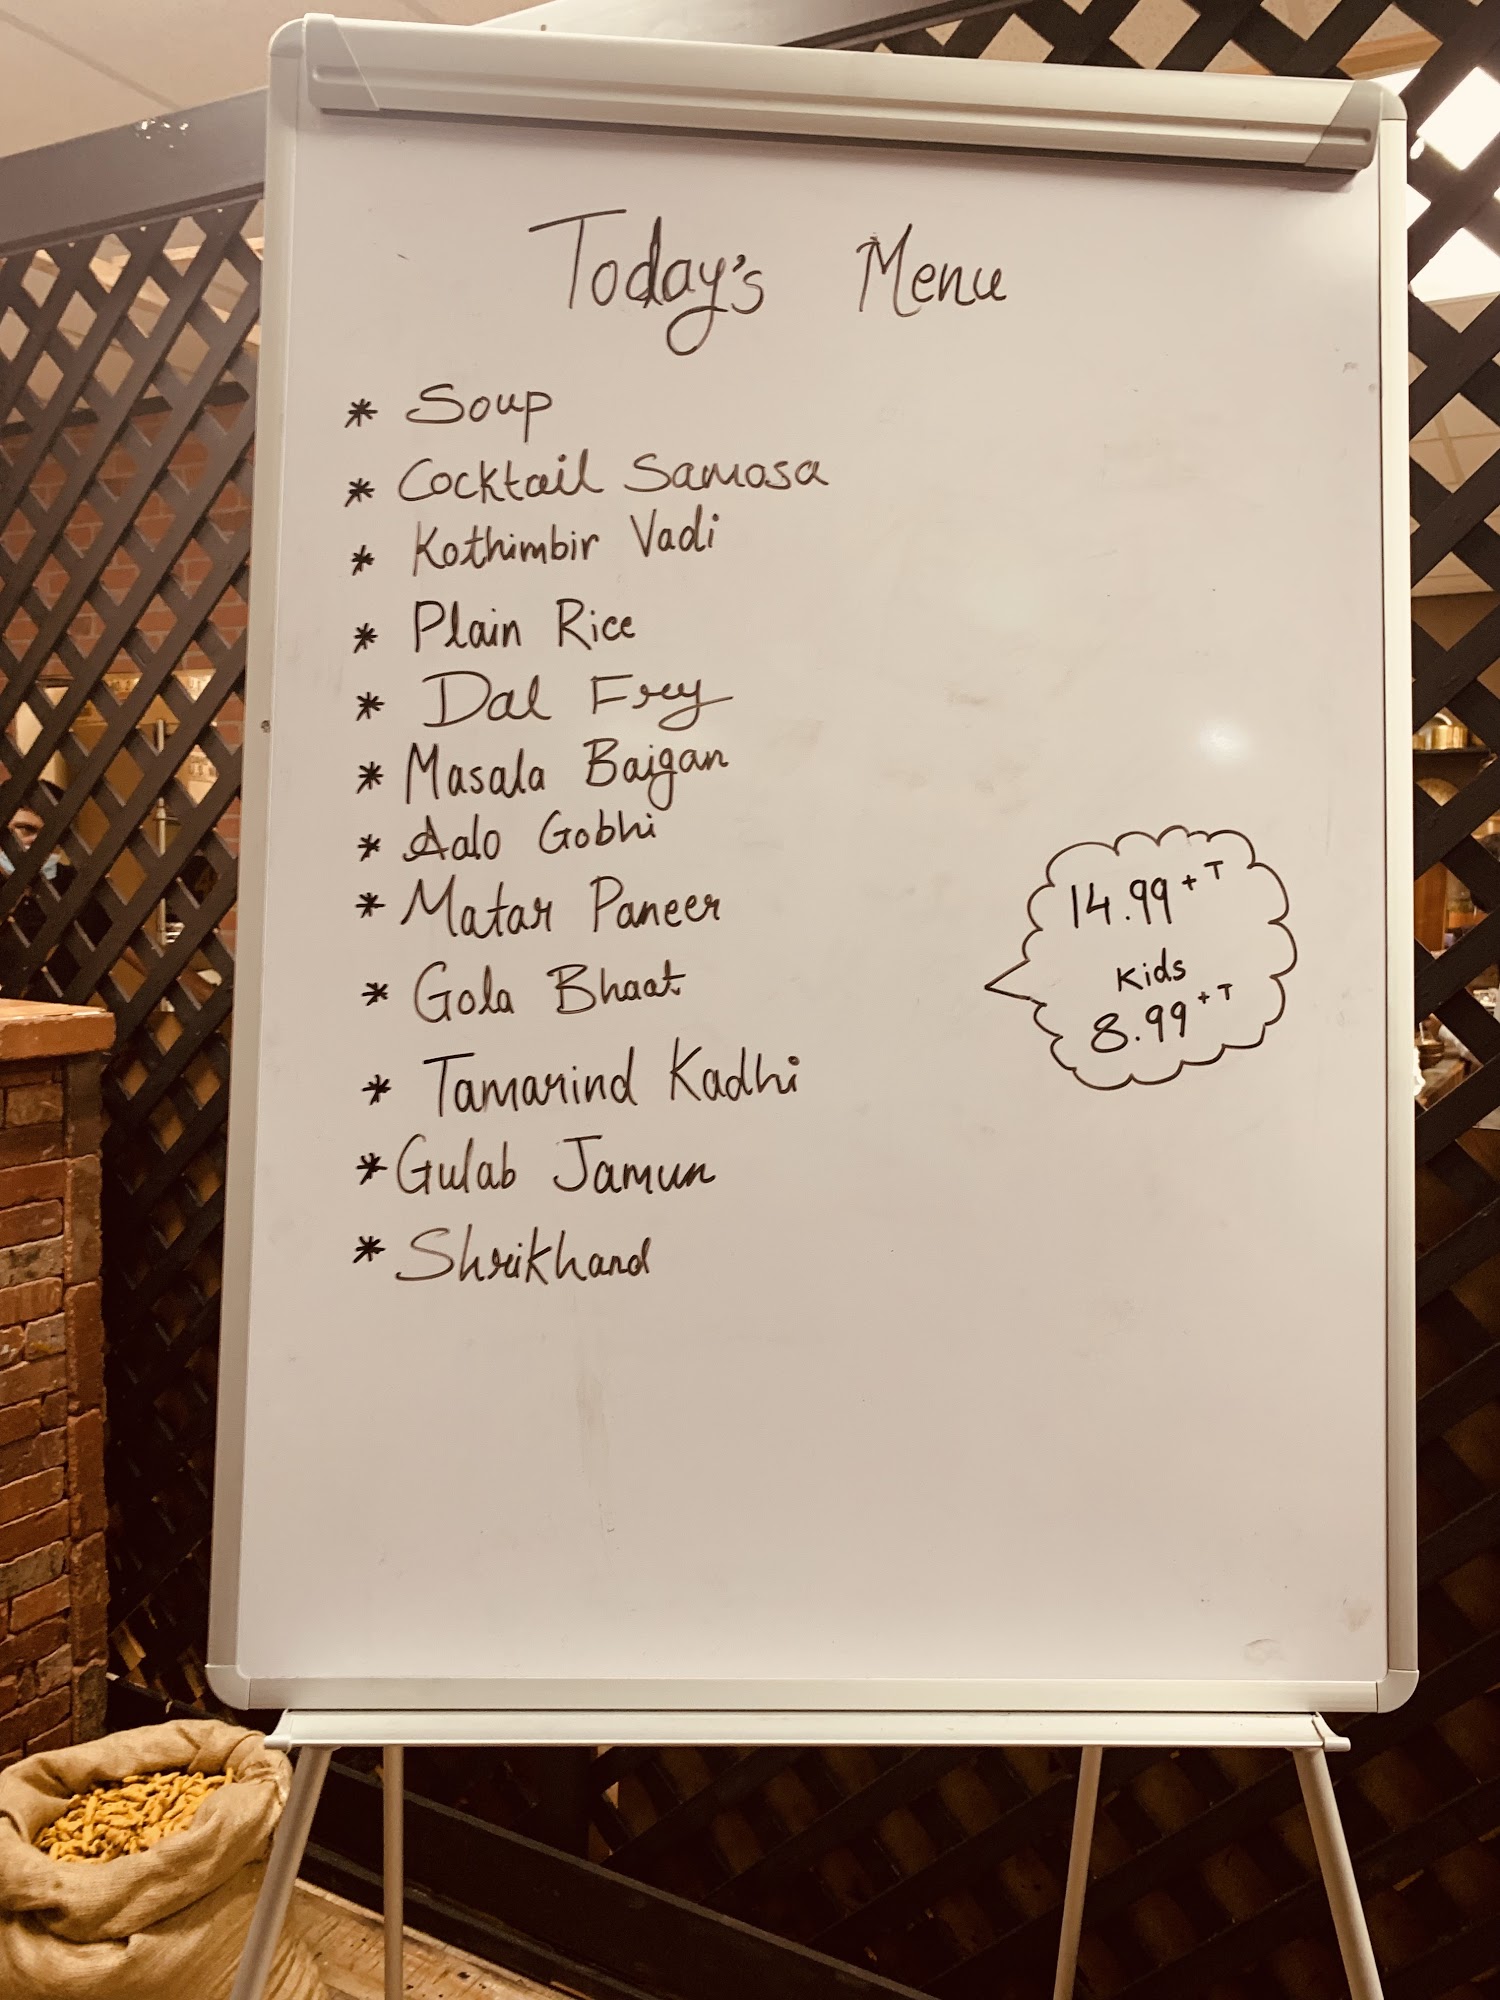 Today's Menu
* Soup
* Cocktail Samosa
* Kothimbir Vadi
* Plain Rice
* Dal Frey
* Masala Baigan
* Aalo Gobhi
* Matar Paneer
* Gola Bhaat
* Tamarind Kadhi
* Gulab Jamun
* Shrikhand
14.99 + T
Kids
8.99 + T